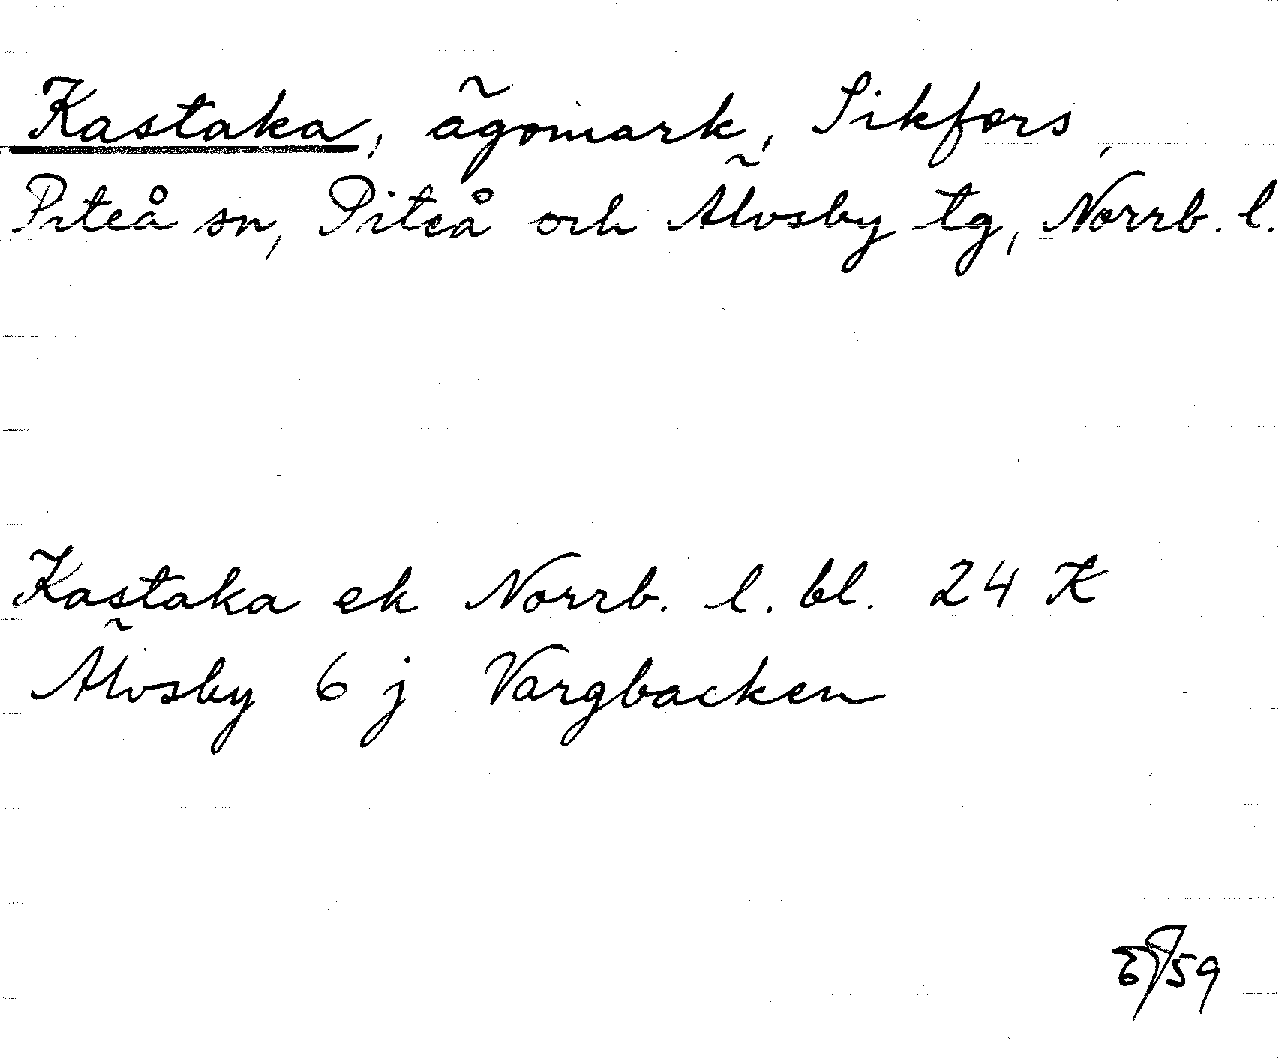 Kastaka, ägomark, Sikfors,
Piteå sn, Piteå och Älvsby tg, Norrb. l.
Kastaka ek Norrb. l. bl. 24 K
Älvsby 6 j Vargbacken
59